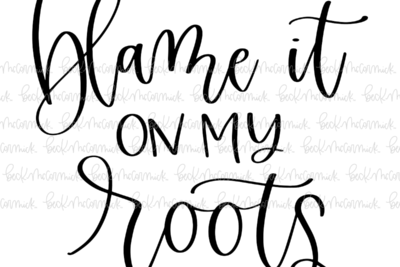 blame it
ON MY
roots